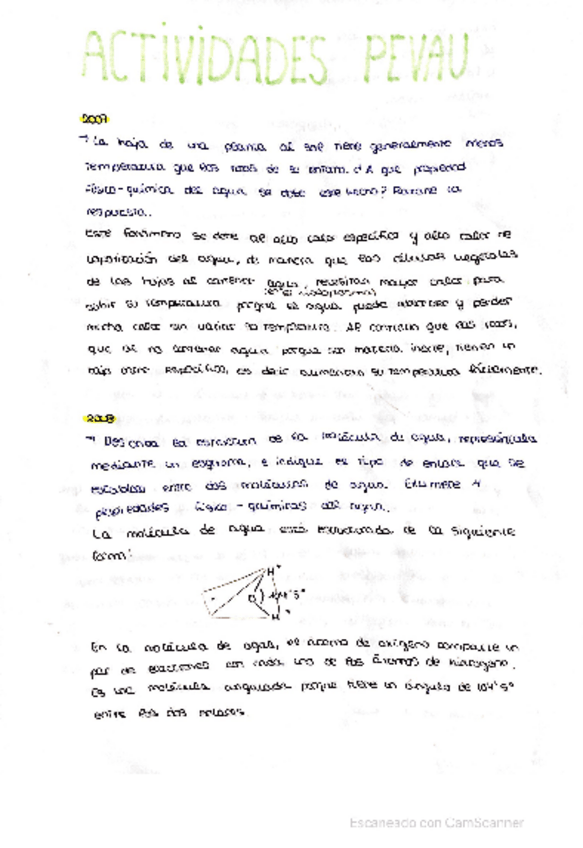 ACTIVIDADES PEVAU
2007
→ La hoja de una planta al sol tiene generalmente menos
temperatura que las rocas de su entorno. ¿A que propiedad
físico-química del agua se debe este hecho? Razone la
respuesta.
Este fenómeno se debe al alto calor específico y alto calor de
vaporización del agua, de manera que las células vegetales
de las hojas al contener agua, necesitan mayor calor para
subir su temperatura porque el agua puede absorber y perder
mucha calor sin variar su temperatura. Al contrario que las rocas,
que al no contener agua porque son materia inerte, tienen un
bajo calor específico, es decir aumentan su temperatura fácilmente.
2008
→ Describa la estructura de la molécula de agua, represéntela
mediante un esquema, e indique el tipo de enlace que se
establece entre dos moléculas de agua. Enumere 4
propiedades físico-químicas del agua.
La molécula de agua está estructurada de la siguiente
forma:
H⁺
O
H⁺
En la molécula de agua, el átomo de oxígeno comparte un
par de electrones con cada uno de los átomos de hidrógeno.
Es una molécula angulada porque tiene un ángulo de 104'5º
entre los dos enlaces
Escaneado con CamScanner